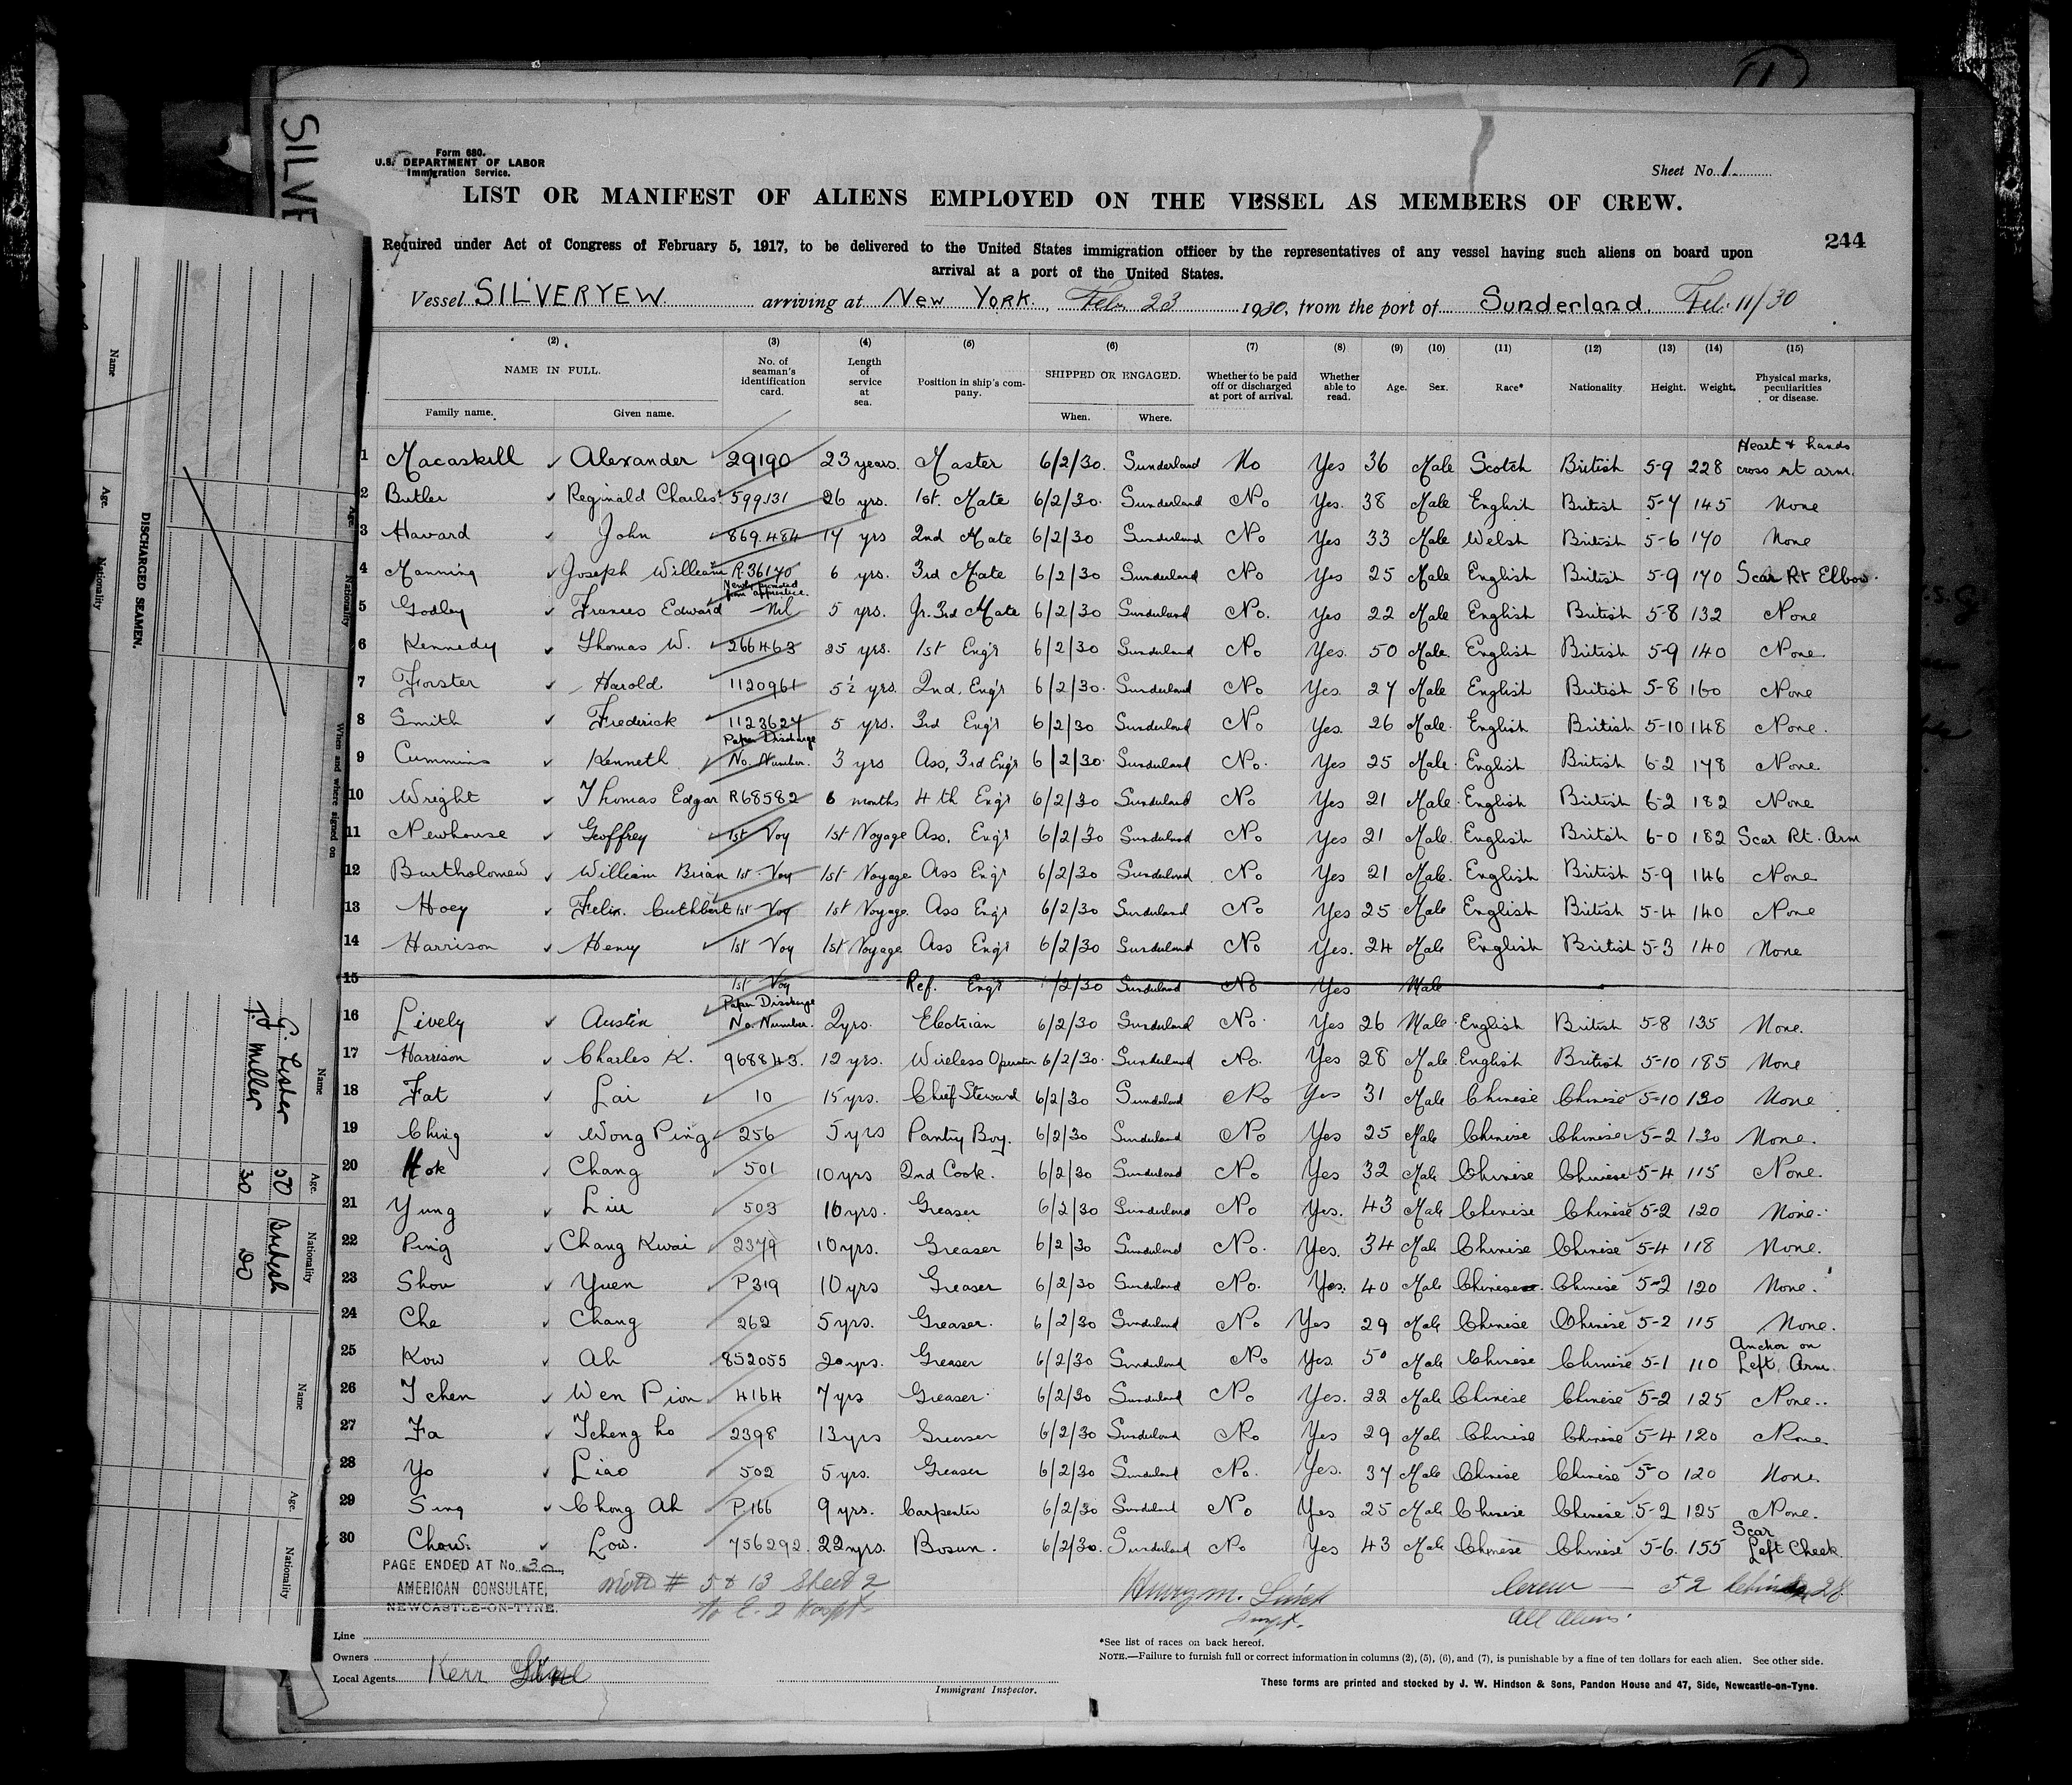 SILVE
Form 680.
U.S. DEPARTMENT OF LABOR
Immigration Service.
Sheet No. 1.
LIST OR MANIFEST OF ALIENS EMPLOYED ON THE VESSEL AS MEMBERS OF CREW.
244
Required under Act of Congress of February 5, 1917, to be delivered to the United States immigration officer by the representatives of any vessel having such aliens on board upon
arrival at a port of the United States.
Vessel SILVERYEW arriving at New York, Feb. 23 1930, from the port of Sunderland. Feb. 11/30
(2) (3) (4) (5) (6) (7) (8) (9) (10) (11) (12) (13) (14) (15)
NAME IN FULL. No. of seaman's identification card. Length of service at sea. Position in ship's company. SHIPPED OR ENGAGED. Whether to be paid off or discharged at port of arrival. Whether able to read. Age. Sex. Race* Nationality Height. Weight. Physical marks, peculiarities or disease.
Family name. Given name. When. Where.
1 Macaskill Alexander 29190 23 years. Master 6/2/30. Sunderland No Yes 36 Male Scotch British 5-9 228 Heart & hands cross rt arm.
2 Butler Reginald Charles 599131 26 yrs. 1st. Mate 6/2/30. Sunderland No Yes. 38 Male English British 5-7 145 None
3 Havard John 869.484 17 yrs 2nd Mate 6/2/30 Sunderland No Yes 33 Male Welsh British 5-6 170 None
4 Manning Joseph William R.36170 6 yrs. 3rd Mate 6/2/30 Sunderland No Yes 25 Male English British 5-9 170 Scar Rt Elbow.
5 Godley Frances Edward Newly promoted from apprentice. Nil 5 yrs. Jr. 3rd Mate 6/2/30 Sunderland No. Yes 22 Male English British 5-8 132 None
6 Kennedy Thomas W. 266463 25 yrs. 1st Eng'r 6/2/30 Sunderland No Yes. 50 Male. English British 5-9 140 None.
7 Forster Harold 1120961 5½ yrs. 2nd. Eng'r 6/2/30. Sunderland No Yes. 27 Male English British 5-8 160 None
8 Smith Frederick 1123627 5 yrs. 3rd Eng'r 6/2/30 Sunderland No Yes. 26 Male. English British 5-10 148 None.
9 Cummins Kenneth Paper Discharge No. Number. 3 yrs Ass, 3rd Eng'r 6/2/30. Sunderland No. Yes 25 Male. English British 6-2 178 None.
10 Wright Thomas Edgar R68582 6 months 4th Eng'r 6/2/30 Sunderland No Yes 21 Male. English British 6-2 182 None
11 Newhouse Geoffrey 1st Voy 1st Voyage Ass. Eng'r 6/2/30 Sunderland No Yes 21 Male. English British 6-0 182 Scar Rt. Arm
12 Bartholomew William Brian 1st Voy 1st Voyage Ass Eng'r 6/2/30 Sunderland No Yes 21 Male. English British 5-9 146 None
13 Hoey Felix. Cuthbert 1st Voy 1st Voyage. Ass Eng'r 6/2/30 Sunderland No Yes 25 Male English British 5-4 140 None
14 Harrison Henry 1st Voy 1st Voyage Ass Eng'r 6/2/30 Sunderland No Yes. 24 Male English British 5-3 140 None
15 1st Voy Ref. Eng'r /2/30 Sunderland No Yes Male
16 Lively Austin Paper Discharge No. Number. 2yrs. Electrian 6/2/30 Sunderland No. Yes 26 Male. English British 5-8 135 None.
17 Harrison Charles K. 968843. 12 yrs. Wireless Operator 6/2/30. Sunderland No. Yes 28 Male English British 5-10 185 None
18 Fat Lai 10 15 yrs. Chief Steward 6/2/30 Sunderland No Yes 31 Male Chinese Chinese 5-10 130 None
19 Ching Wong Ping 256 5 yrs Pantry Boy. 6/2/30 Sunderland No Yes 25 Male Chinese Chinese 5-2 130 None.
20 Hok Chang 501 10 yrs 2nd Cook. 6/2/30 Sunderland No Yes 32 Male Chinese Chinese 5-4 115 None.
21 Yung Liu 503 16 yrs. Greaser 6/2/30 Sunderland No Yes. 43 Male Chinese Chinese 5-2 120 None.
22 Ping Chang Kwai 2379 10 yrs. Greaser 6/2/30 Sunderland No. Yes. 34 Male Chinese Chinese 5-4 118 None.
23 Shou Yuen P319 10 yrs Greaser 6/2/30 Sunderland No. Yes. 40 Male Chinese Chinese 5-2 120 None.
24 Che Chang 262 5 yrs. Greaser. 6/2/30 Sunderland No Yes 29 Male Chinese Chinese 5-2 115 None.
25 Kow Ah 852055 20 yrs. Greaser 6/2/30 Sunderland No Yes. 50 Male Chinese Chinese 5-1 110 Anchor on Left Arm.
26 Tchen Wen Pion 4164 7 yrs Greaser 6/2/30 Sunderland No Yes. 22 Male Chinese Chinese 5-2 125 None.
27 Fa Tcheng ho 2398 13 yrs Greaser 6/2/30 Sunderland No Yes 29 Male Chinese Chinese 5-4 120 None
28 Yo Liao 502 5 yrs. Greaser 6/2/30 Sunderland No. Yes. 37 Male Chinese Chinese 5-0 120 None.
29 Sing Chong Ah P.166 9 yrs. Carpenter 6/2/30 Sunderland No Yes 25 Male Chinese Chinese 5-2 125 None.
30 Chow. Low. 756292. 22 yrs. Bosun. 6/2/30. Sunderland No Yes 43 Male Chinese Chinese 5-6. 155 Scar Left Cheek.
PAGE ENDED AT No. 30
AMERICAN CONSULATE,
NEWCASTLE-ON-TYNE.
# 5 & 13 Sheet 2
to E. I Hospt
Henry M.
Insp.
52
All Aliens
Line
Owners
Local Agents Kerr Line
Immigrant Inspector.
*See list of races on back hereof.
NOTE.—Failure to furnish full or correct information in columns (2), (5), (6), and (7), is punishable by a fine of ten dollars for each alien. See other side.
These forms are printed and stocked by J. W. Hindson & Sons, Pandon House and 47, Side, Newcastle-on-Tyne.
DISCHARGED SEAMEN.
Name Age. Nationality
Name Age. Nationality When and where signed on
Name Age. Nationality
G. Lister 50 British
T.J Miller 30 do
Name Age. Nationality